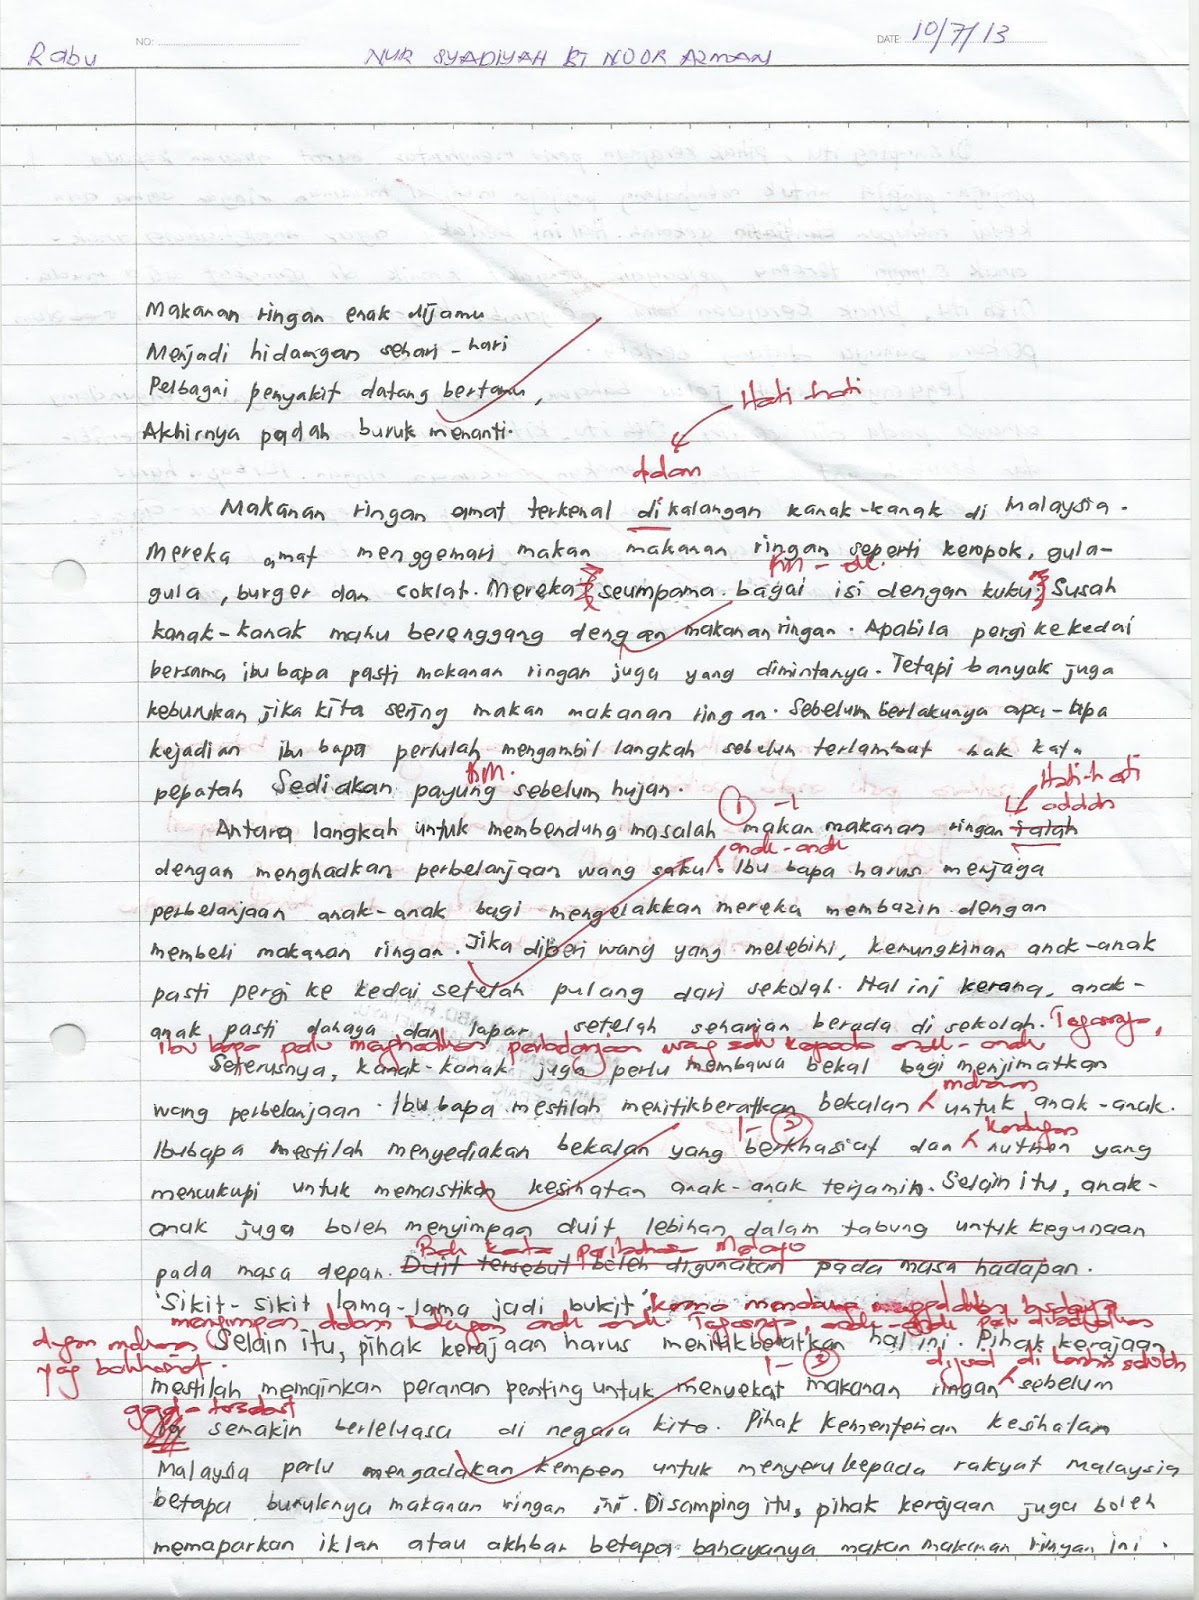 Rabu NO: NUR SYADIYAH BT NOOR AZMAN DATE: 10/7/13
Makanan ringan enak dijamu
Menjadi hidangan sehari-hari
Pelbagai penyakit datang bertamu,
Hati-hati
Akhirnya padah buruk menanti.
dalam
Makanan ringan amat terkenal di kalangan kanak-kanak di Malaysia.
Mereka amat menggemari makan makanan ringan seperti keropok, gula-
gula, burger dan coklat. Mereka seumpama bagai isi dengan kuku. Susah
kanak-kanak mahu berenggang dengan makanan ringan. Apabila pergi ke kedai
bersama ibu bapa pasti makanan ringan juga yang dimintanya. Tetapi banyak juga
keburukan jika kita sering makan makanan ringan. Sebelum berlakunya apa-apa
kejadian ibu bapa perlulah mengambil langkah sebelum terlambat bak kata
BM. Hati-hati
pepatah Sediakan payung sebelum hujan.
1 adalah
Antara langkah untuk membendung masalah makan makanan ringan ialah
anak-anak
dengan menghadkan perbelanjaan wang saku. Ibu bapa harus menjaga
perbelanjaan anak-anak bagi mengelakkan mereka membazir dengan
membeli makanan ringan. Jika diberi wang yang melebihi, kemungkinan anak-anak
pasti pergi ke kedai setelah pulang dari sekolah. Hal ini kerana, anak-
anak pasti dahaga dan lapar setelah seharian berada di sekolah. Tegasnya,
ibu bapa perlu menghadkan perbelanjaan wang saku kepada anak-anak
Seterusnya, kanak-kanak juga perlu membawa bekal bagi menjimatkan
makanan
wang perbelanjaan. Ibu bapa mestilah menitikberatkan bekalan untuk anak-anak.
2 kandungan
Ibubapa mestilah menyediakan bekalan yang berkhasiat dan nutrien yang
mencukupi untuk memastikan kesihatan anak-anak terjamin. Selain itu, anak-
anak juga boleh menyimpan duit lebihan dalam tabung untuk kegunaan
Bak kata peribahasa Melayu
pada masa depan. Duit tersebut boleh digunakan pada masa hadapan.
'Sikit-sikit lama-lama jadi bukit' kerana
menyimpan dalam kalangan anak-anak. Tegasnya, anak-anak perlu dibekalkan
dengan makanan Selain itu, pihak kerajaan harus menitikberatkan hal ini. Pihak kerajaan
yang berkhasiat. 3 dijual di kantin sekolah
mestilah memainkan peranan penting untuk menyekat makanan ringan sebelum
semakin berleluasa di negara kita. Pihak kementerian kesihatan
Malaysia perlu mengadakan kempen untuk menyeru kepada rakyat Malaysia
betapa buruknya makanan ringan ini. Disamping itu, pihak kerajaan juga boleh
memaparkan iklan atau akhbar betapa bahayanya makan makanan ringan ini.